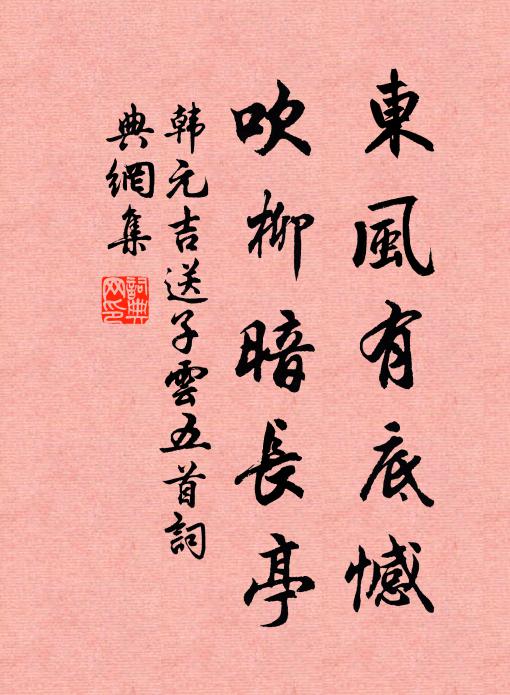 東風有底憾
吹柳暗長亭
韩元吉送子雲五首詞
典網集
詞典网印